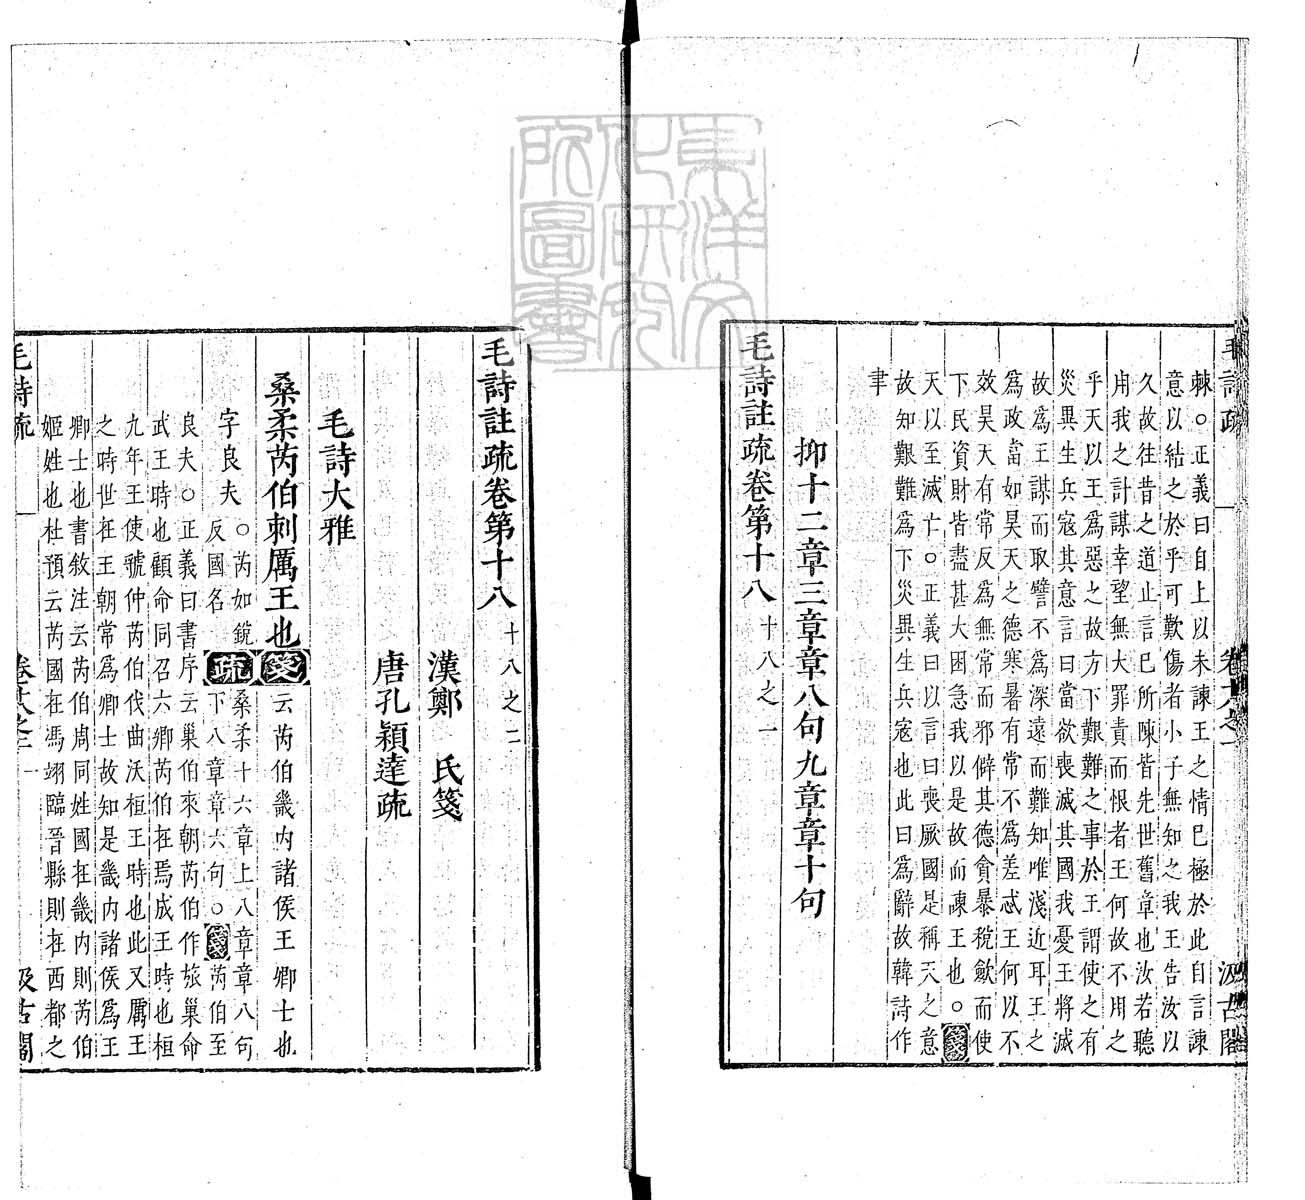 毛詩疏 卷十八之一 汲古閣
棘○正義曰自上以未諫王之情已極於此自言諫
意以結之於乎可歎傷者小子無知之我王告汝以
久故往昔之道止言已所陳皆先世舊章也汝若聽
用我之計謀幸望無大罪責而恨者王何故不用之
乎天以王爲惡之故方下艱難之事於王謂使之有
災異生兵寇其意言曰當欲喪滅其國我憂王將滅
故爲王謀而取譬不爲深遠而難知唯淺近耳王之
爲政當如昊天之德寒暑有常不爲差忒王何以不
效昊天有常反爲無常而邪僻其德貪暴稅歛而使
下民資財皆盡甚大困急我以是故而諫王也○箋
天以至滅亡○正義曰以言曰喪厥國是稱天之意
故知艱難爲下災異生兵寇也此曰爲辭故韓詩作
聿
抑十二章三章章八句九章章十句
毛詩註疏卷第十八 十八之一
毛詩註疏卷第十八 十八之二
漢鄭 氏箋
唐孔穎達疏
毛詩大雅
桑柔芮伯刺厲王也箋云芮伯畿內諸侯王卿士也
字良夫○芮如銳
反國名疏桑柔十六章上八章章八句
下八章章六句○箋芮伯至
良夫○正義曰書序云巢伯來朝芮伯作旅巢命
武王時也顧命同召六卿芮伯在焉成王時也桓
九年王使虢仲芮伯伐曲沃桓王時也此又厲王
之時世在王朝常爲卿士故知是畿内諸侯爲王
卿士也書敘注云芮伯周同姓國在畿内則芮伯
姬姓也杜預云芮國在馮翊臨晉縣則在西都之
毛詩疏 卷十八之二 一 汲古閣
東洋文
化研究
所圖書